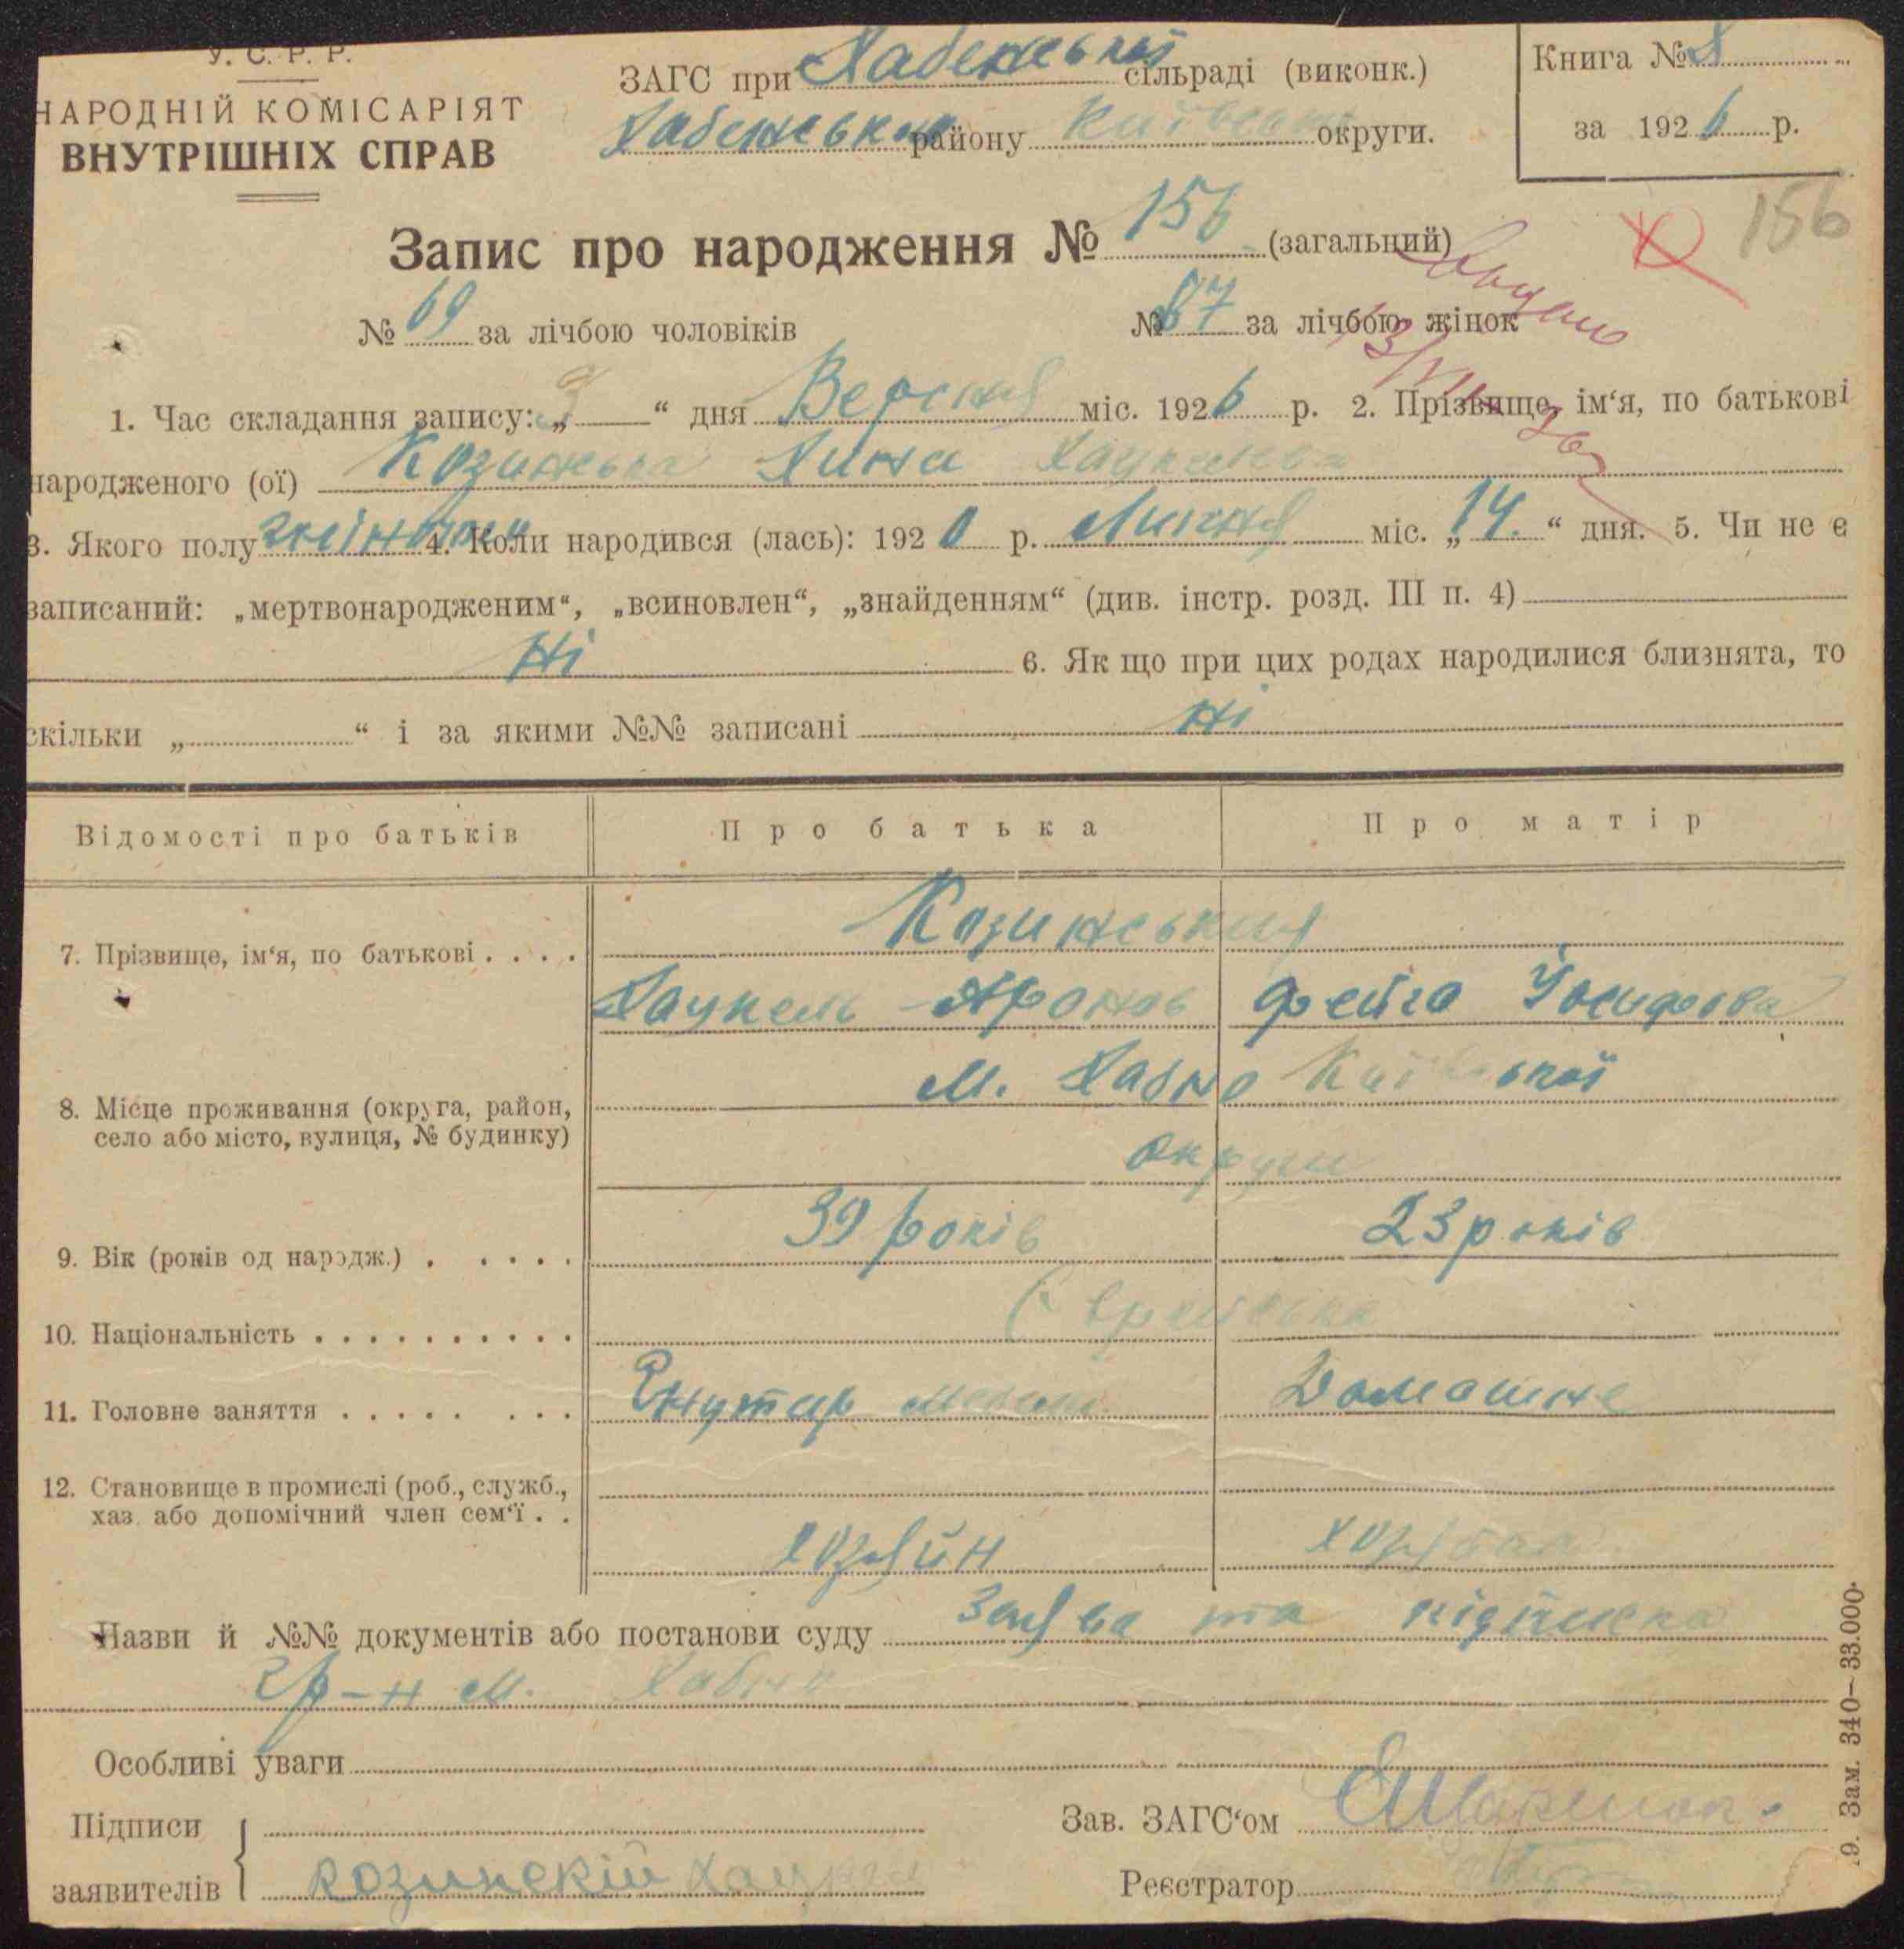 У. С. Р. Р.
НАРОДНІЙ КОМІСАРІЯТ
ВНУТРІШНІХ СПРАВ
ЗАГС при Хабенській сільраді (виконк.)
Хабенського району Київської округи.
Книга №
за 1926 р.
Запис про народження № 156 (загальний)
156
№ 69 за лічбою чоловіків
№ 87 за лічбою жінок
1. Час складання запису: „ “ дня Версня міс. 1926 р. 2. Прізвище, ім‘я, по батькові
народженого (ої) Козинська Хина
3. Якого полу жіночки 4. Коли народився (лась): 1920 р. Липня міс. „14.“ дня. 5. Чи не є
записаний: „мертвонародженим“, „всиновлен“, „знайденням“ (див. інстр. розд. III п. 4)
Ні 6. Як що при цих родах народилися близнята, то
скільки „ “ і за якими №№ записані Ні
Відомості про батьків
Про батька
Про матір
7. Прізвище, ім‘я, по батькові . . . .
Козинський
Хацкель Аронов
Фейга Йосифова
8. Місце проживання (округа, район,
село або місто, вулиця, № будинку)
м. Хабно Київської
округи
9. Вік (років од нарoдж.) . . . . .
39 років
23 років
10. Національність . . . . . . . . . .
Єврейська
11. Головне заняття . . . . . . . .
Домашнє
12. Становище в промислі (роб., служб.,
хаз. або допомічний член сем‘ї . .
хозяйн
хозяйка
Назви й №№ документів або постанови суду Заява та підписка
гр-н м. Хабно
Особливі уваги
Підписи
заявителів
Козинский Хацкел
Зав. ЗАГС‘ом
Реєстратор
9. Зам. 340—33.000.